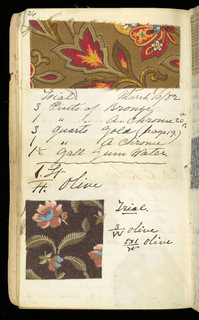 24
Trial March 10/82
3 Pints of Bronze
1 " " A. Chrome 20
3 quarts Gold (page 19)
1 " A Chrome
1½ Gall Gum Water
1. H
H. Olive
Trial
3/W Olive
Olive